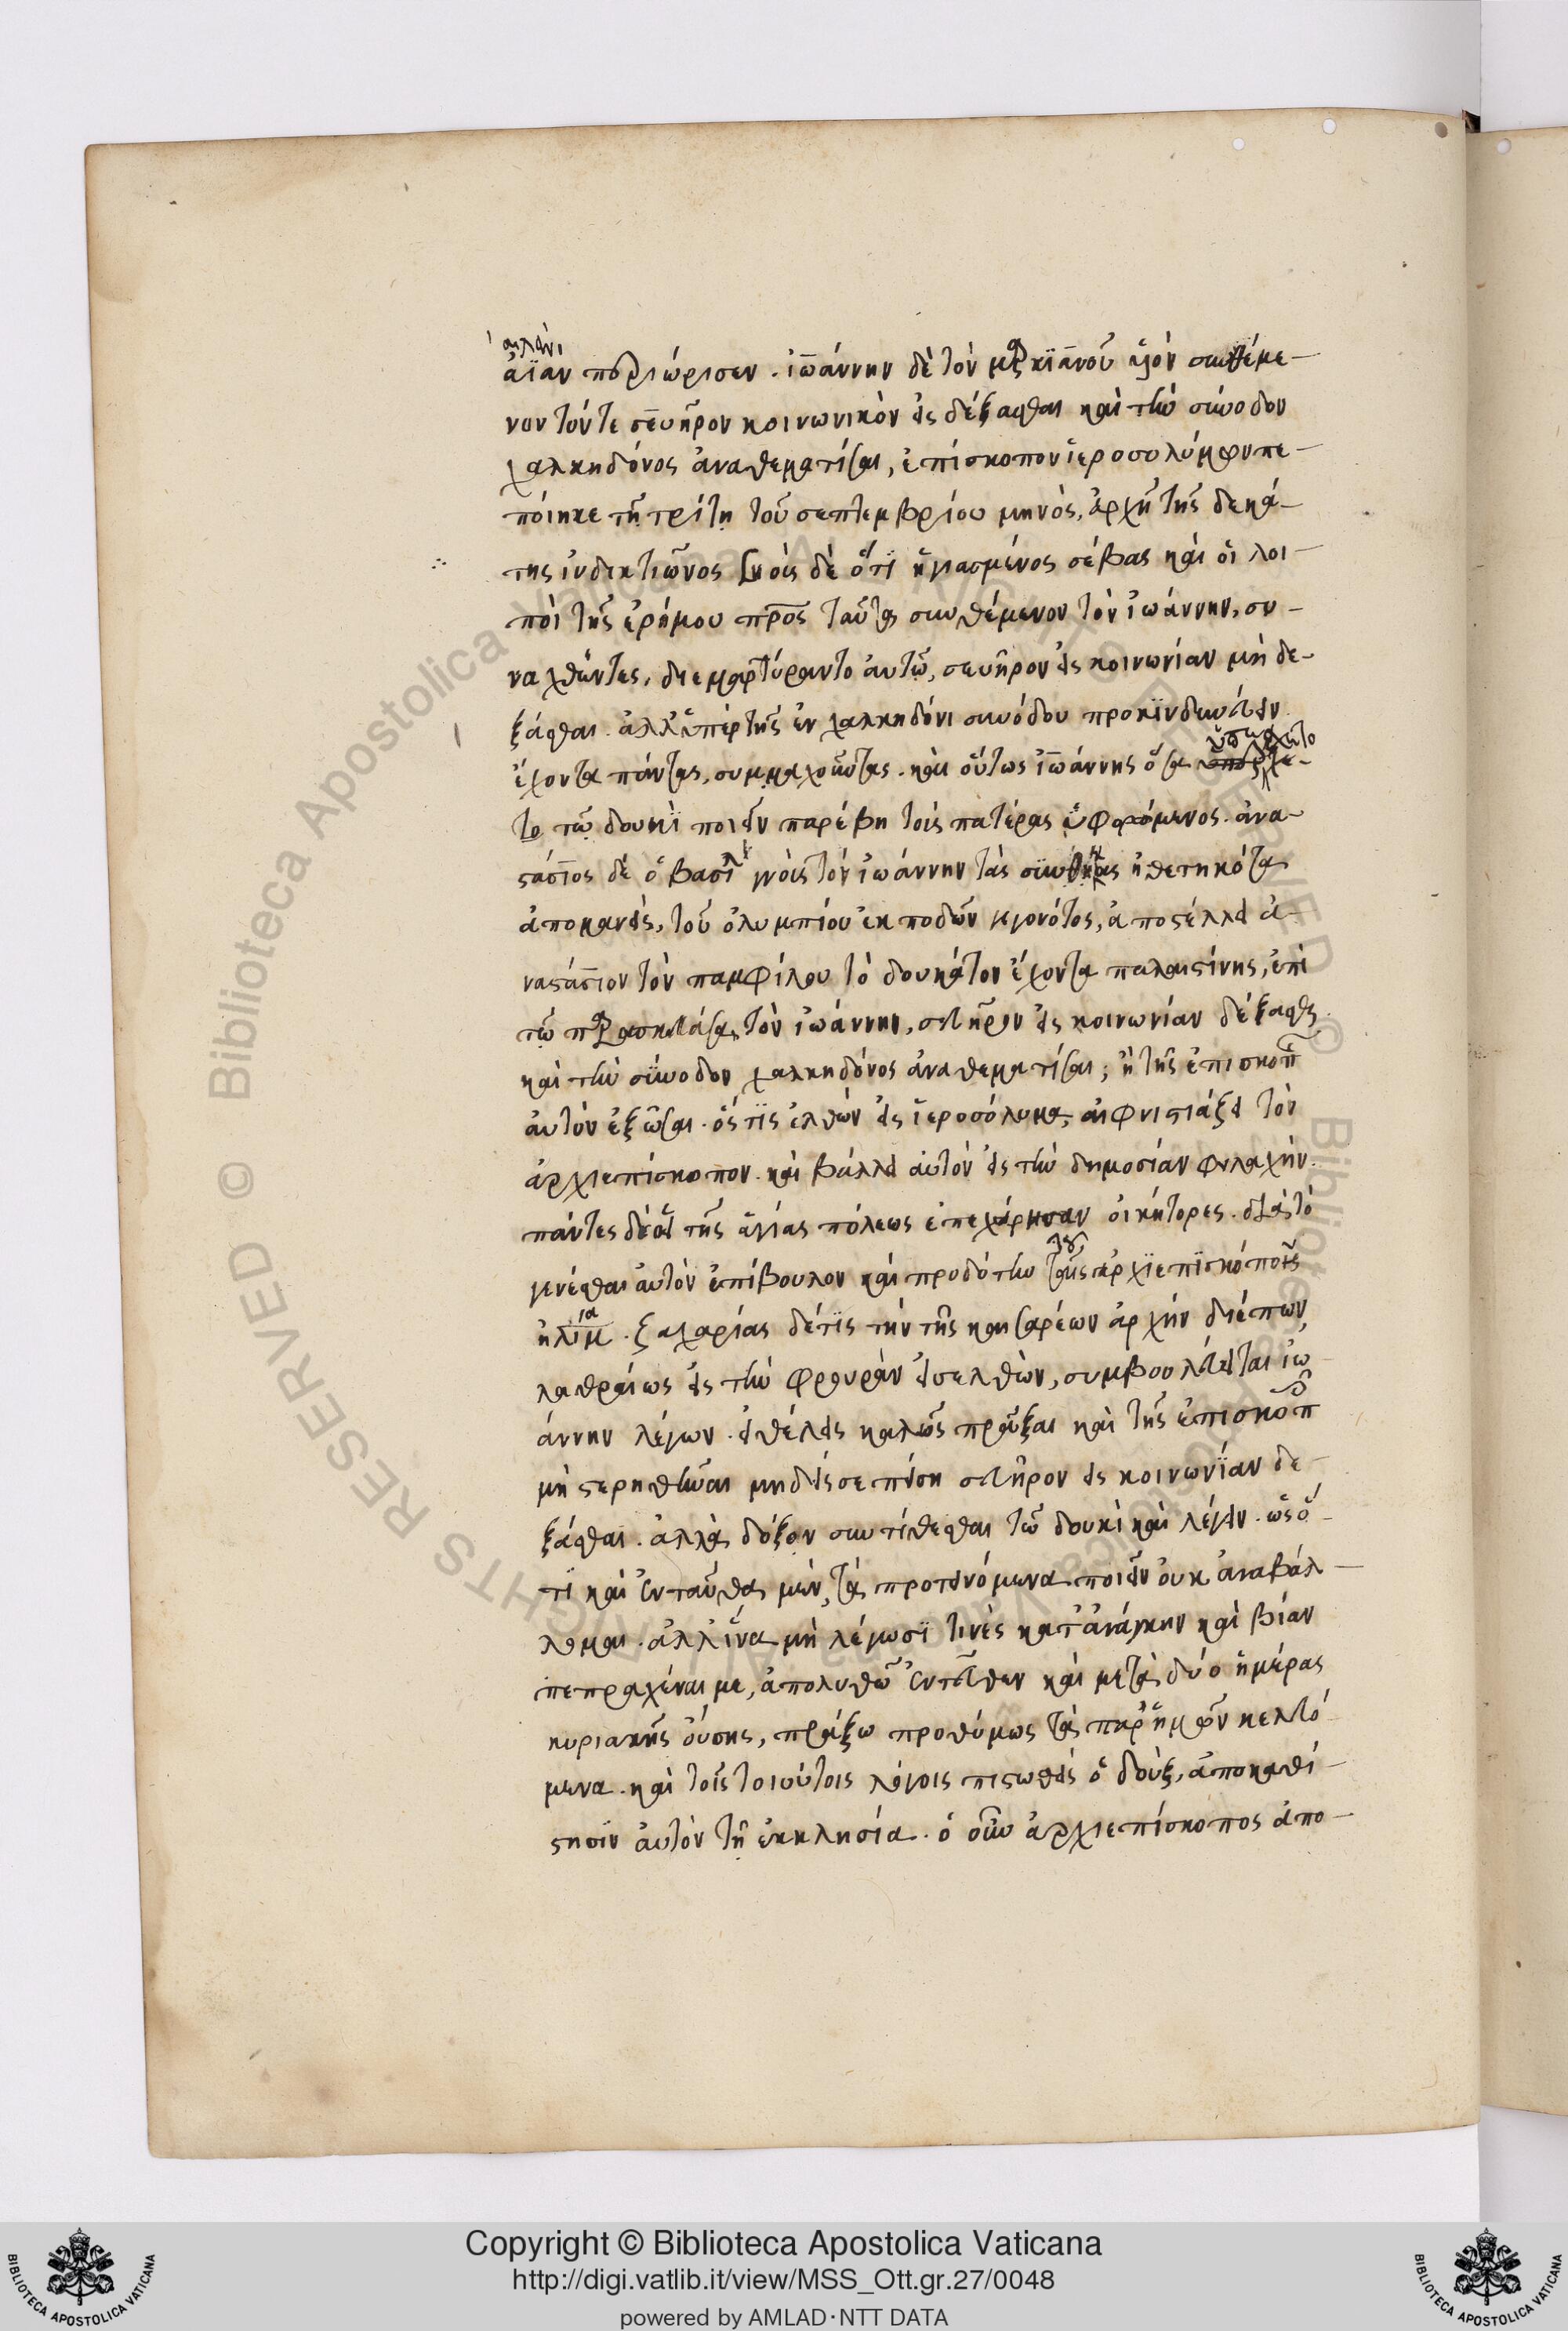 αἰλὰν
ἀϊαν περιώρισεν . ἰωάννην δὲ τὸν μαρκιανοῦ υἱὸν συνθέμε-
νον τόν τε σευῆρον κοινωνικὸν εἰς δέξασθαι καὶ τὴν σύνοδον
χαλκηδόνος ἀναθεματίσαι, ἐπίσκοπον ἱεροσολύμων πε-
ποίηκε τῇ τρίτῃ τοῦ σεπτεμβρίου μηνὸς, ἀρχῇ τῆς δεκά-
της ἰνδικτιῶνος γνοὺς δὲ ὅτι ἡγιασμένος σάβας καὶ οἱ λοι-
ποὶ τῆς ἐρήμου πρὸς ταῦτα συνθέμενον τὸν ἰωάννην, συ-
ναχθέντες, διεμαρτύραντο αὐτῷ, σευῆρον εἰς κοινωνίαν μὴ δε-
ξάσθαι . ἀλλ' ὑπὲρ τῆς ἐν χαλκηδόνι συνόδου προκινδυνεύειν
ὑπέσχετο
ἔχοντα πάντας, συμμαχοῦντας . καὶ οὕτως ἰωάννης ὅσα
το τῷ δουκὶ ποιεῖν παρέβη τοὺς πατέρας ὑφορώμενος . ἀνα-
στάσιος δὲ ὁ βασιλ γνοὺς τὸν ἰωάννην τὰς συνθήκας ἠθετηκότα
ἀπομανεὶς, τοῦ ὀλυμπίου ἐκποδὼν γεγονότος, ἀποστέλλει ἀ-
ναστάσιον τὸν παμφίλου τὸ δουκάτον ἔχοντα παλαιστίνης, ἐπὶ
τῷ παρασκευάσαι τὸν ἰωάννην, σευῆρον εἰς κοινωνίαν δέξασθαι
καὶ τὴν σύνοδον χαλκηδόνος ἀναθεματίσαι, ἢ τῆς ἐπισκοπῆς
αὐτὸν ἐξῶσαι . ὅστις ἐλθὼν εἰς ἱεροσόλυμα, αἰφνιδιάζει τὸν
ἀρχιεπίσκοπον . καὶ βάλλει αὐτὸν εἰς τὴν δημοσίαν φυλακήν .
πάντες δὲ οἱ τῆς ἁγίας πόλεως ἐπεχάρησαν οἰκήτορες . διὰ τὸ
γενέσθαι αὐτὸν ἐπίβουλον καὶ προδότην τοῦ ἀρχιεπισκόπου
ἠλία . ζαχαρίας δέ τις τὴν τῆς καισαρέων ἀρχὴν διέπων,
λαθραίως εἰς τὴν φρουρὰν εἰσελθὼν, συμβουλεύεται ἰω-
άννην λέγων . εἰ θέλεις καλῶς πρᾶξαι καὶ τῆς ἐπισκοπ
μὴ στερηθῆναι μηδείς σε πείση σευῆρον εἰς κοινωνίαν δε-
ξάσθαι . ἀλλὰ δόξον συντίθεσθαι τῷ δουκὶ καὶ λέγειν . ὡς ὅ-
τι καὶ ἐνταῦθα μὲν, τὰ προτεινόμενα ποιεῖν οὐκ ἀναβάλ-
λομαι . ἀλλ' ἵνα μὴ λέγωσι τινὲς κατ' ἀνάγκην καὶ βίαν
πεπραχέναι με, ἀπολυθῶ ἐντεῦθεν καὶ μετὰ δύο ἡμέρας
κυριακῆς οὔσης, πράξω προθύμως τὰ παρ' ἡμῶν κελευό-
μενα . καὶ τοῖς τοιούτοις λόγοις πιστωθεὶς ὁ δοὺξ, ἀποκαθί-
στησιν αὐτὸν τῇ ἐκκλησία . ὁ οὖν ἀρχιεπίσκοπος ἀπο-
Copyright © Biblioteca Apostolica Vaticana
http://digi.vatlib.it/view/MSS_Ott.gr.27/0048
powered by AMLAD·NTT DATA